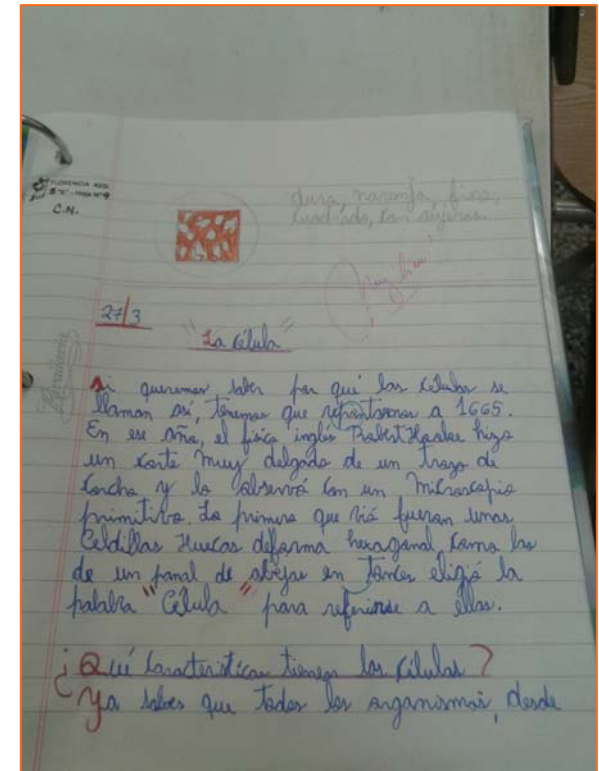 FLORENCIA
5 "E" - HOJA Nº 9
C.N.
dura, naranja, fina,
cuadrado, con agujeros.
¡Muy bien!
27/3
"La célula"
Si queremos saber por qué las células se
llaman así, tenemos que remontarnos a 1665.
En ese año, el físico inglés Robert Hooke hizo
un corte muy delgado de un trozo de
corcho y lo observó con un Microscopio
primitivo. Lo primero que vió fueron unas
Celdillas Huecas deforma hexagonal como las
de un panal de abejas en tonces eligió la
palabra "Célula" para referirse a ellas.
¿Qué características tienen las células?
Ya sabes que todos los organismos, desde